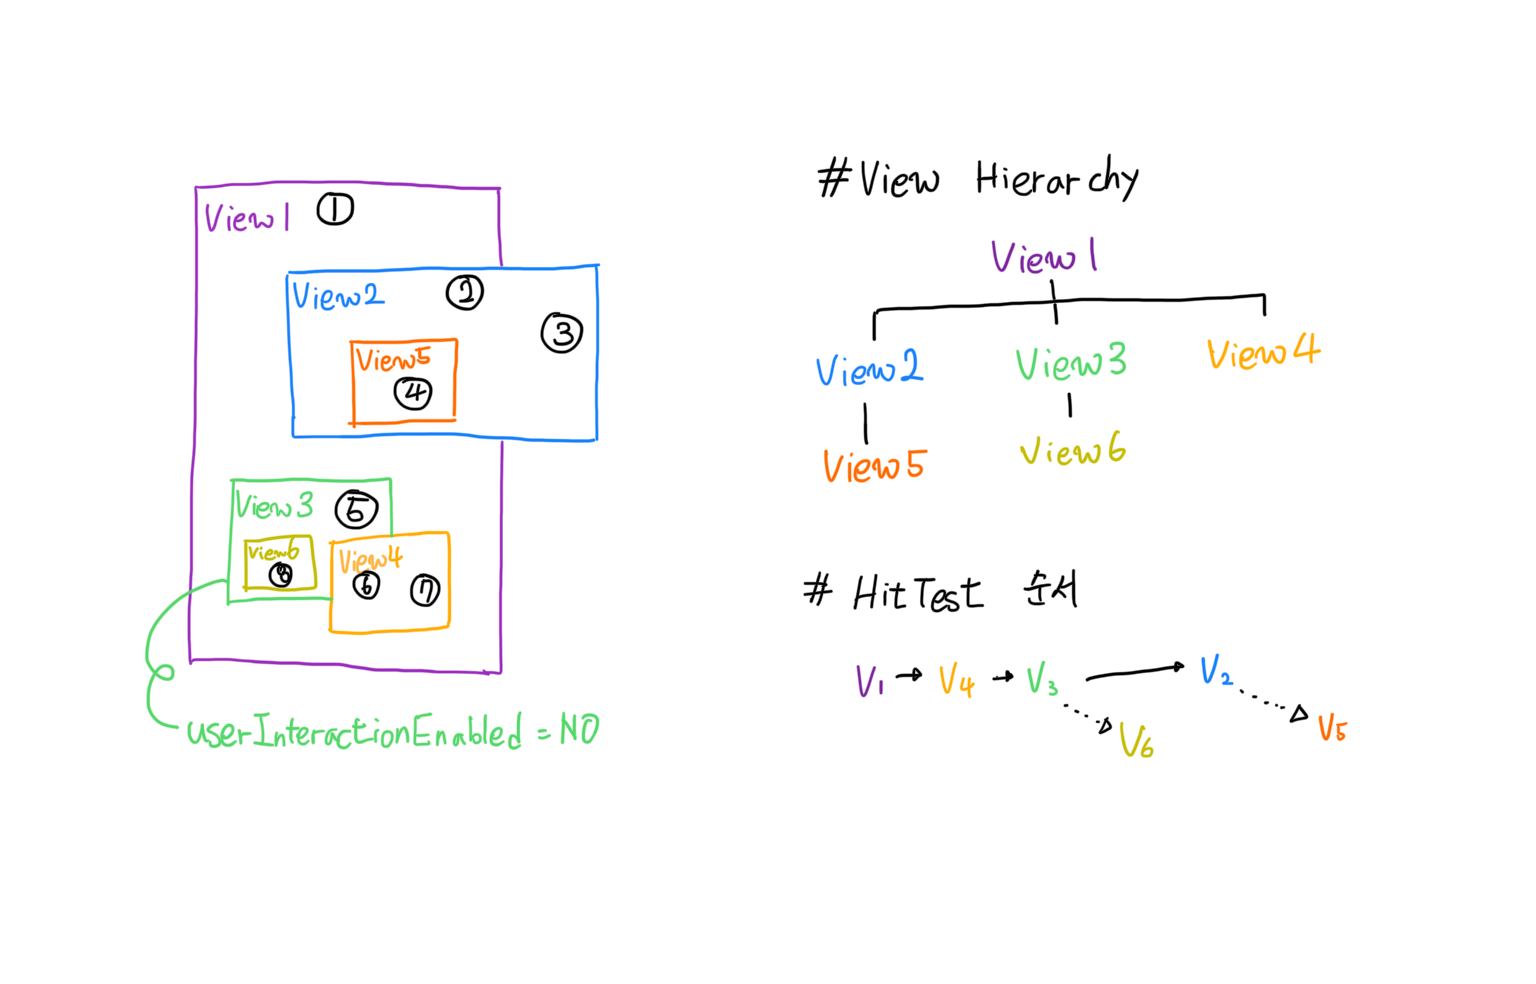 View1 ①
View2 ②
③
View5
④
View3 ⑤
View6
⑧
View4
⑥ ⑦
userInteractionEnabled = NO
# View Hierarchy
View1
View2 View3 View4
View5 View6
# HitTest 순서
V1 → V4 → V3 → V2
V6 V5